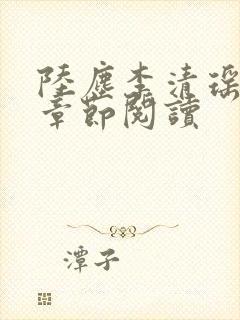 陸塵李清瑤
章節閱讀
潭子